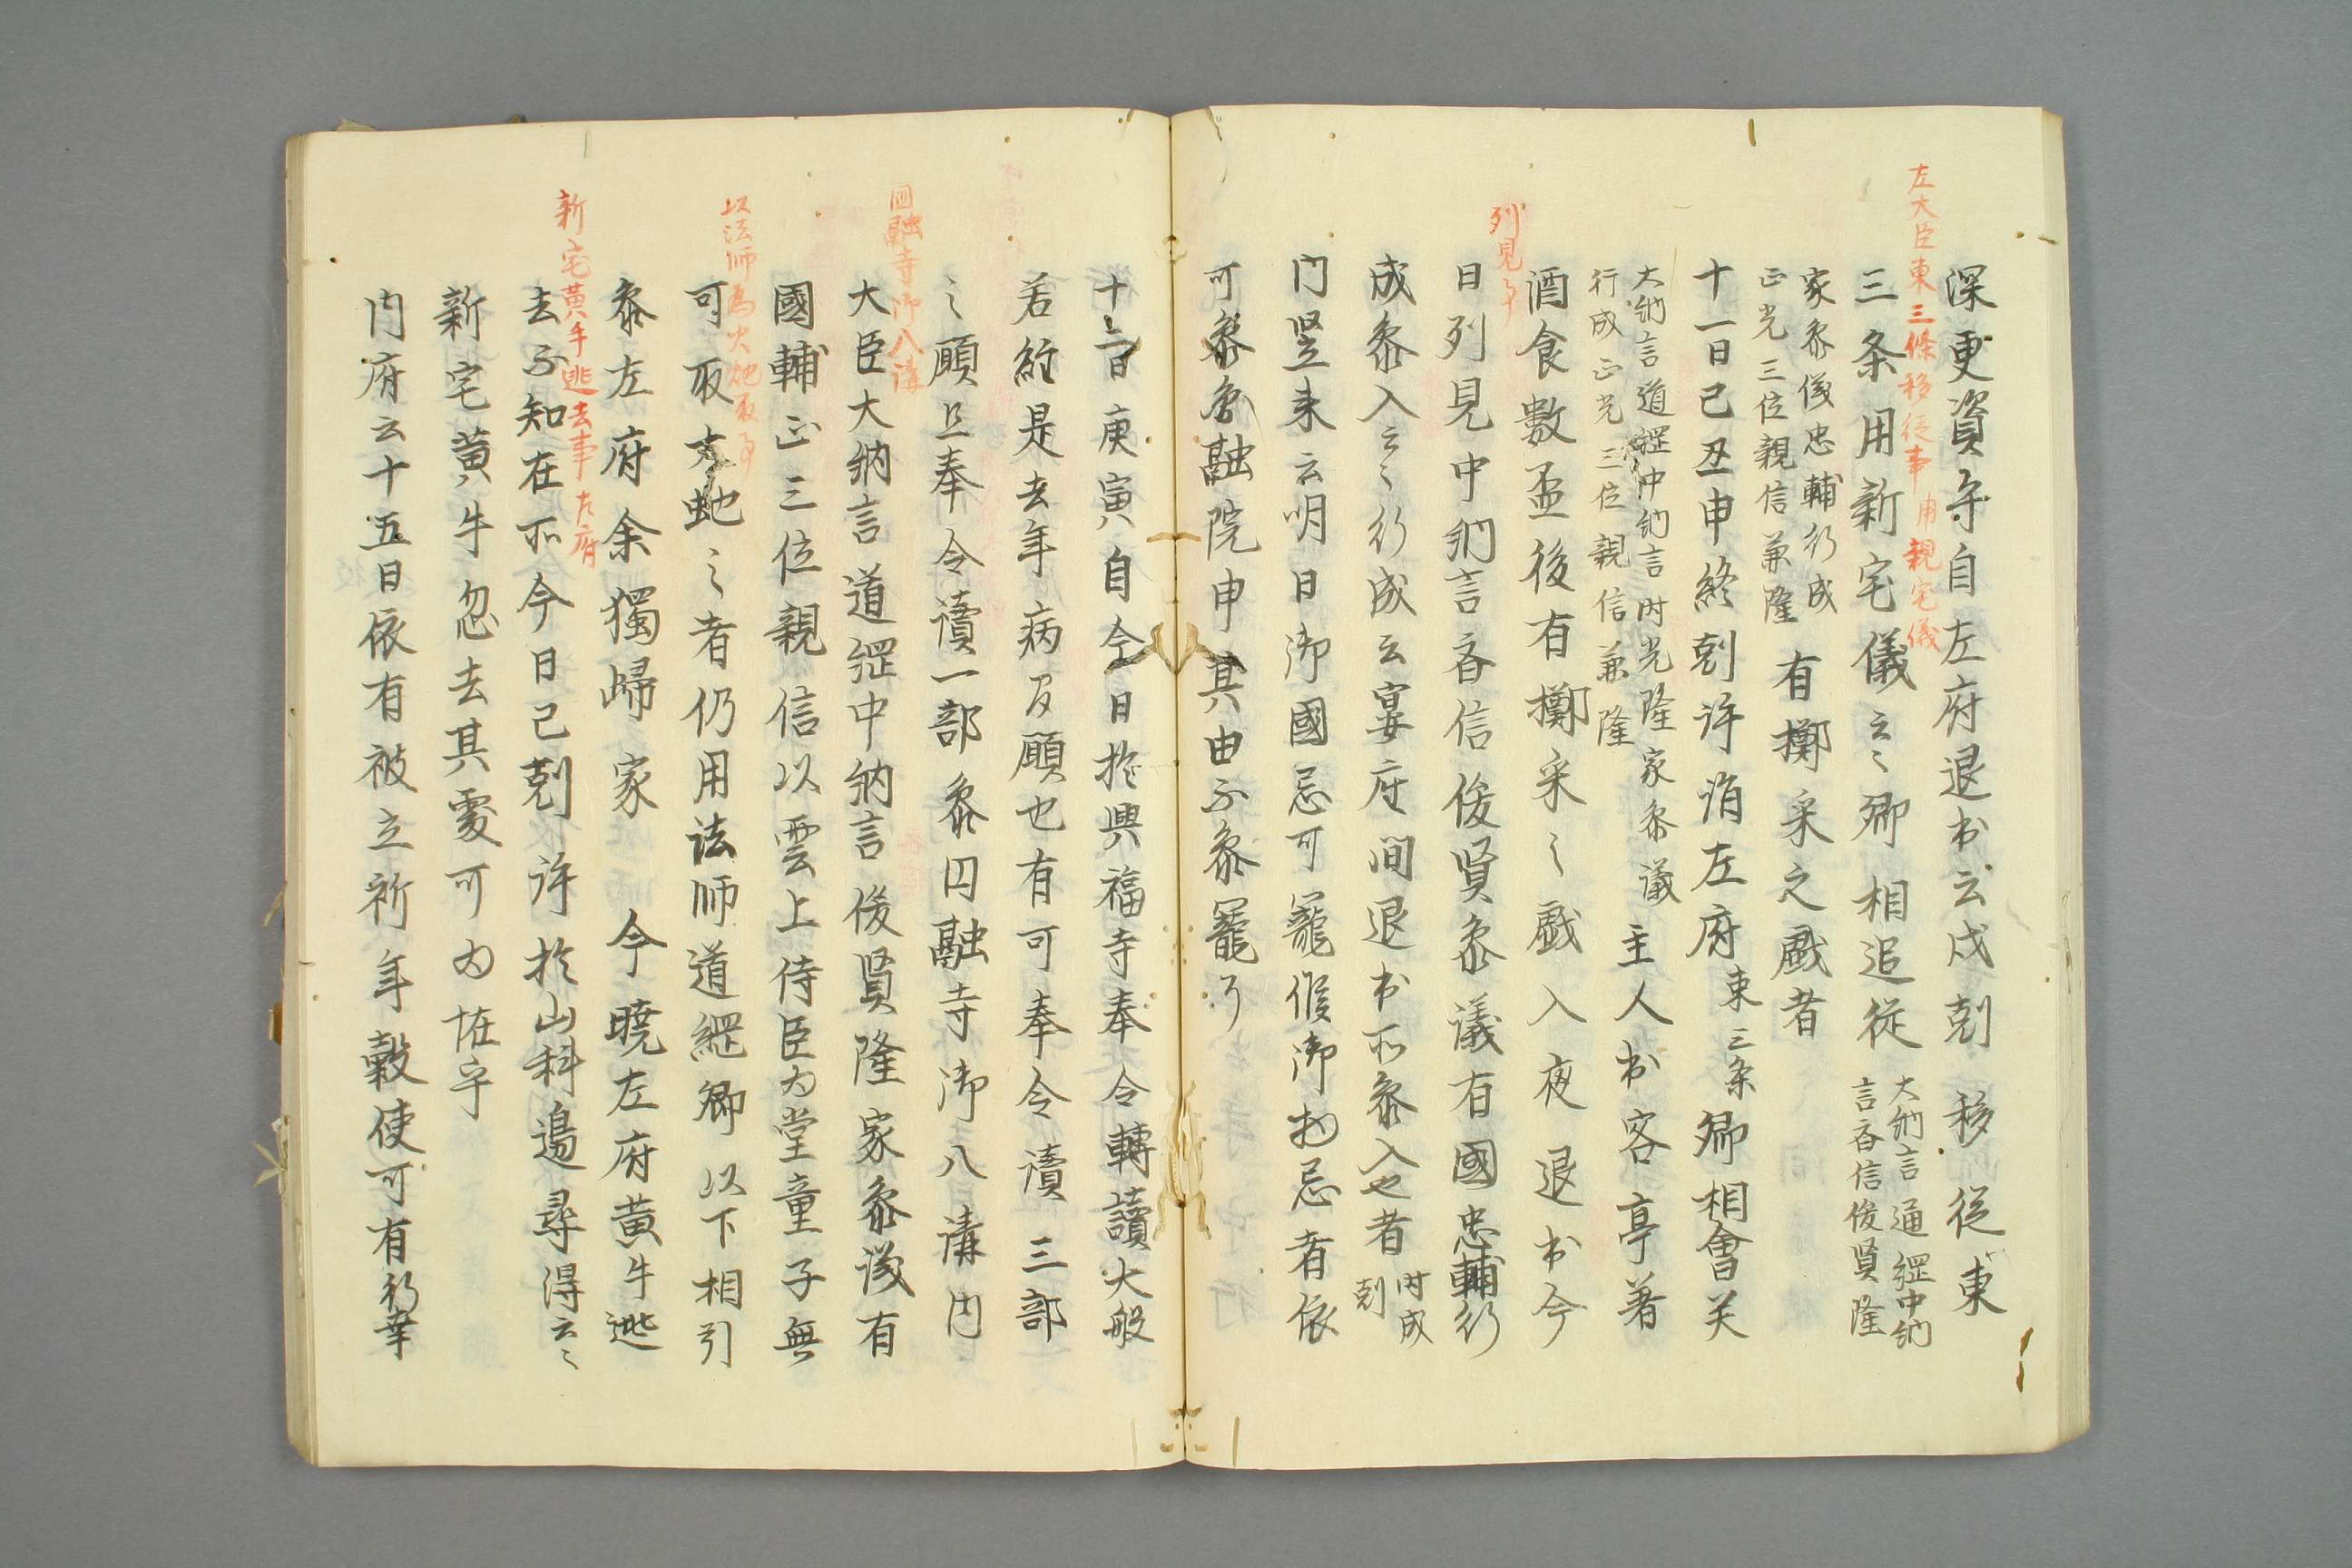 左大臣東三條移徙事用親宅儀
深更資守自左府退出云戌剋移徙東
三条用新宅儀云々卿相追従大納言道綱中納
言斉信俊賢隆
家参議忠輔行成
正光三位親信兼隆有擲采之戯者
十一日己丑申終剋許詣左府東三条卿相會矣
大納言道綱中納言時光隆家参議
行成正光三位親信兼隆主人出客亭着
酒食數盃後有擲采之戯入夜退出今
列見事
日列見中納言斉信俊賢参議有國忠輔行
成参入云々行成云宴座間退出不参入也者時戌
剋
門竪来云明日御國忌可籠候御物忌者依
可参圓融院申其由不参籠了
十二日庚寅自今日於興福寺奉令轉讀大般
若経是去年病及願也有可奉令讀三部
之願且奉令讀一部参円融寺御八講内
圓融寺御八講
大臣大納言道綱中納言俊賢隆家参議有
國輔正三位親信以雲上侍臣為堂童子無
以法師為火虵取事
可取火虵之者仍用法師道綱卿以下相引
参左府余獨帰家 今暁左府黄牛逃
新宅黄牛逃去事左府
去不知在所今日己剋許於山科邉尋得云々
新宅黄牛忽去其處可為恠乎
内府云十五日依有被立祈年穀使可有行幸